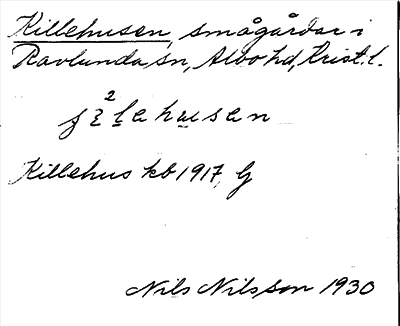 Killehusen, smågårdar i
Ravlunda sn, Albo hd, Krist. l.
2
Killehus kb 1917, G
Nils Nilsson 1930